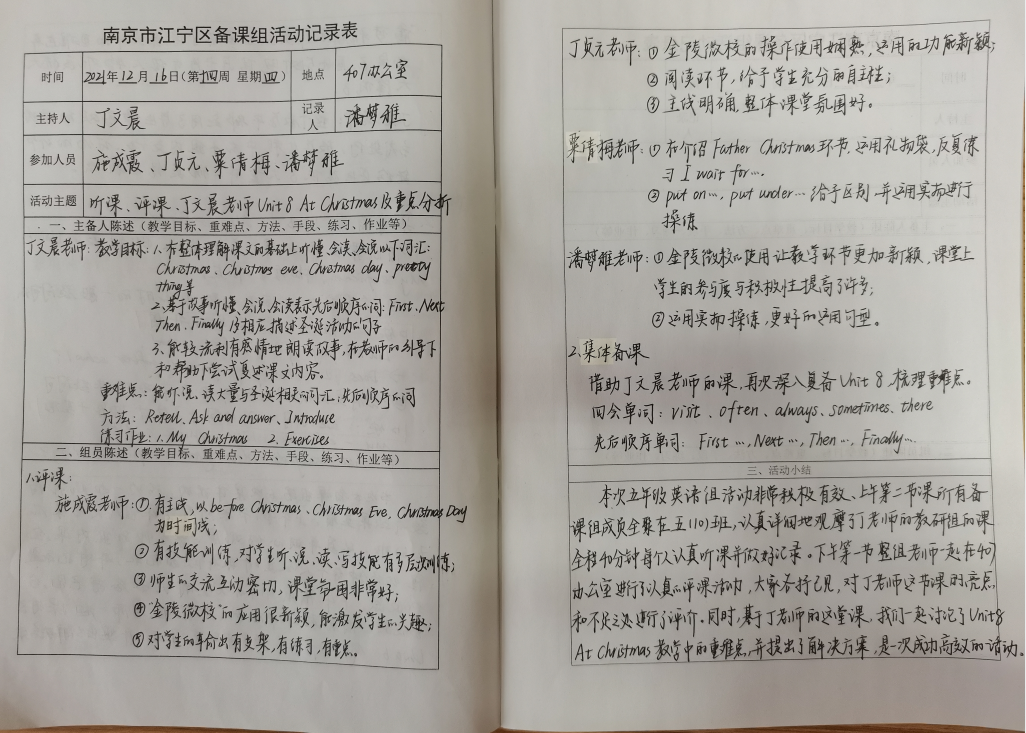 南京市江宁区备课组活动记录表
时间 2021年12月16日(第十四周 星期四) 地点 407办公室
主持人 丁文晨 记录人 潘梦雅
参加人员 施成霞、丁贞元、粟倩梅、潘梦雅
活动主题 听课、评课、丁文晨老师Unit 8 At Christmas及重点分析
一、主备人陈述(教学目标、重难点、方法、手段、练习、作业等)
丁文晨老师:教学目标:1、在整体理解课文的基础上听懂、会读、会说以下词汇:
Christmas、Christmas eve、Christmas day、pretty
thing等
2、基于故事听懂、会说、会读表示先后顺序的词:First、Next
Then、Finally及相应描述圣诞活动的句子
3、能较流利有感情地朗读故事,在教师的引导下
和帮助下尝试复述课文内容。
重难点:能听、说、读大量与圣诞相关的词汇;先后顺序的词
方法:Retell、Ask and answer、Introduce
练习作业:1、My Christmas 2、Exercises
二、组员陈述(教学目标、重难点、方法、手段、练习、作业等)
1、评课:
施成霞老师:①有主线,以be-fore Christmas、Christmas Eve,Christmas Day
为时间线;
②有技能训练,对学生听、说、读、写技能有多层次训练;
③师生的交流互动密切,课堂氛围非常好;
④“金陵微校”的应用很新颖,能激发学生的兴趣;
⑤对学生的输出有支架,有练习,有重点。
丁贞元老师:①金陵微校的操作使用娴熟,运用的功能新颖;
②阅读环节,给予学生充分的自主性;
③主线明确,整体课堂氛围好。
粟倩梅老师:①在介绍Father Christmas环节,运用礼物袋,反复练
习I wait for…
②put on…,put under…给予区别,并运用实物进行
操练
潘梦雅老师:①金陵微校的使用让教学环节更加新颖,课堂上
学生的参与度与积极性提高了许多;
②运用实物操练,更好的运用句型。
2、集体备课
借助丁文晨老师的课,再次深入复备Unit 8,梳理重难点。
四会单词:visit、often、always、sometimes、there
先后顺序单词:First…,Next…,Then…,Finally…
三、活动小结
本次五年级英语组活动非常积极有效、上午第二节课所有备
课组成员全聚在五(10)班,认真详细地观摩了丁老师的教研组的课
全程40分钟每个人认真听课并做好记录。下午第一节整组老师一起在407
办公室进行了认真的评课活动,大家各抒己见,对丁老师这节课的亮点
和不足之处进行了评价。同时,基于丁老师的这堂课,我们一起讨论了Unit 8
At Christmas教学中的重难点,并提出了解决方案,是一次成功高效的活动。